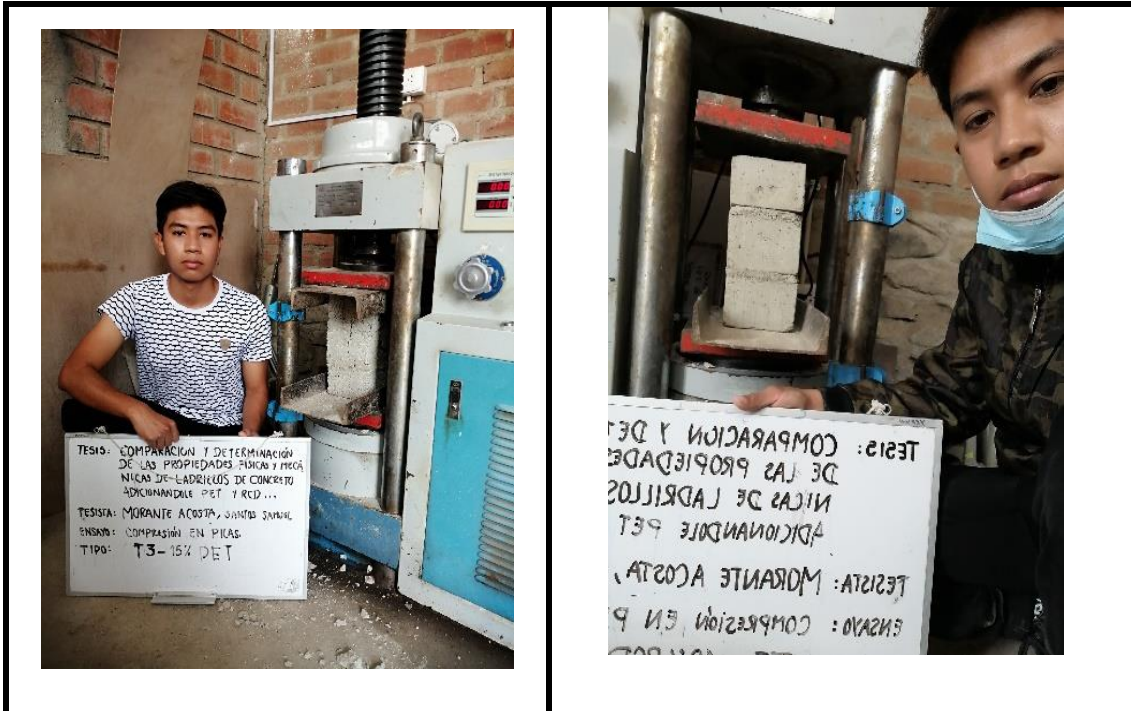 TESIS: COMPARACION Y DETERMINACIÓN
DE LAS PROPIEDADES FISICAS Y MECÁ
NICAS DE LADRILLOS DE CONCRETO
ADICIONANDOLE PET Y RCD...
TESISTA: MORANTE ACOSTA, SANTOS SAMUEL
ENSAYO: COMPRESIÓN EN PILAS
TIPO: T3-15% PET
TESIS: COMPARACION Y DET
DE LAS PROPIEDADES
NICAS DE LADRILLOS
ADICIONANDOLE PET
TESISTA: MORANTE ACOSTA,
ENSAYO: COMPRESIÓN EN P